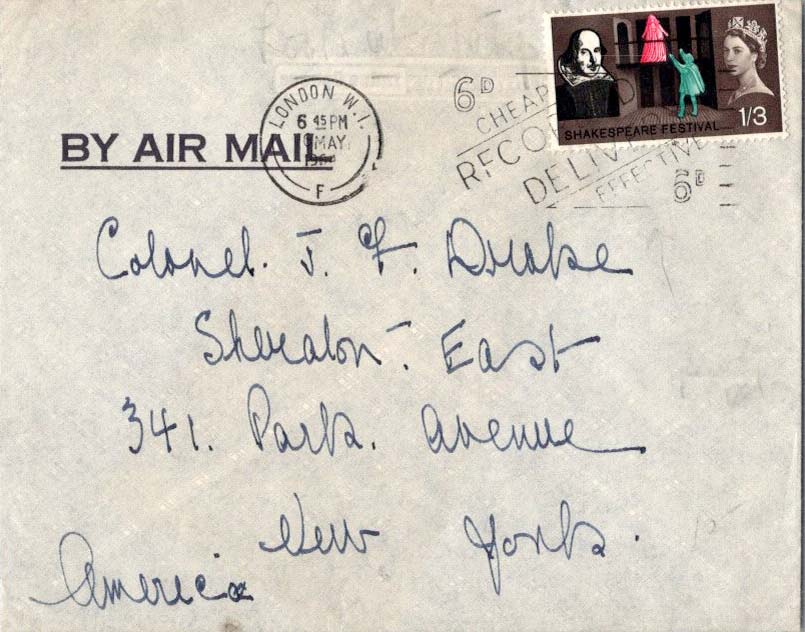 SHAKESPEARE FESTIVAL 1/3
LONDON W.1.
6 45 PM
MAY
F
6D
CHEAP
DELIV
EFFECTIVE
6D
BY AIR MAIL
Colonel. J. F. Drake
Sheraton - East
341. Park. Avenue
New York.
America